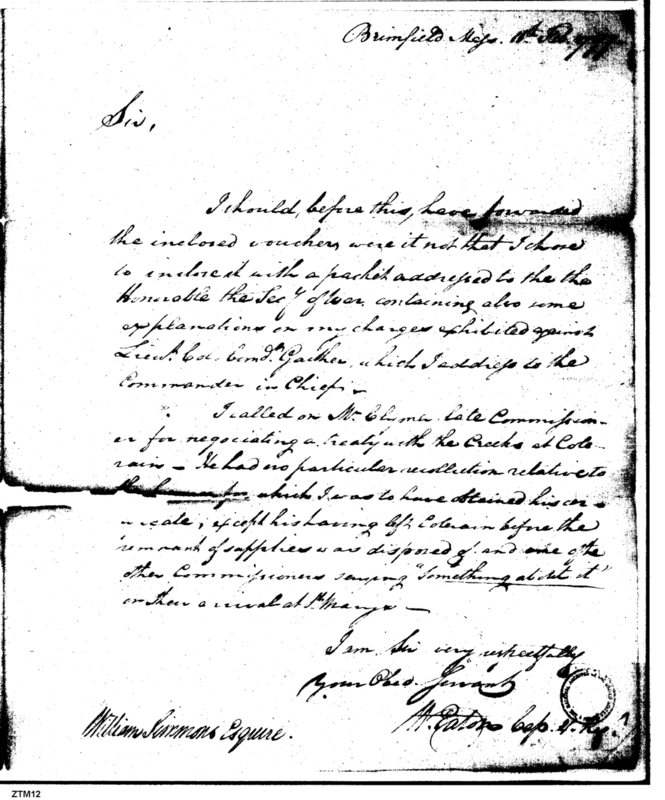 Brimfield Mass. 10th Feb.
Sir,
I should, before this, have forwarded
the inclosed vouchers, were it not that I chose
to inclose it with a packet addressed to the the
Honorable the Secy of War, containing also some
explanations on my charges exhibited against
Lieut. Col. Comdt. Gaither, which I address to the
Commander in Chief. —
I called on Mr. Clymer, late Commission-
er for negociating a treaty with the Creeks at Cole-
rain — He had no particular recollection relative to
the for which I was to have obtained his cer-
icate; except his having left Colerain before the
remnant of supplies was disposed of and one of the
other Commissioners saying "something about it"
on their arrival at St. Marys —
I am, Sir very respectfully
Your Obed. Servant
W. Eaton Cap. U.S.
William Simmons Esquire.
ZTM12